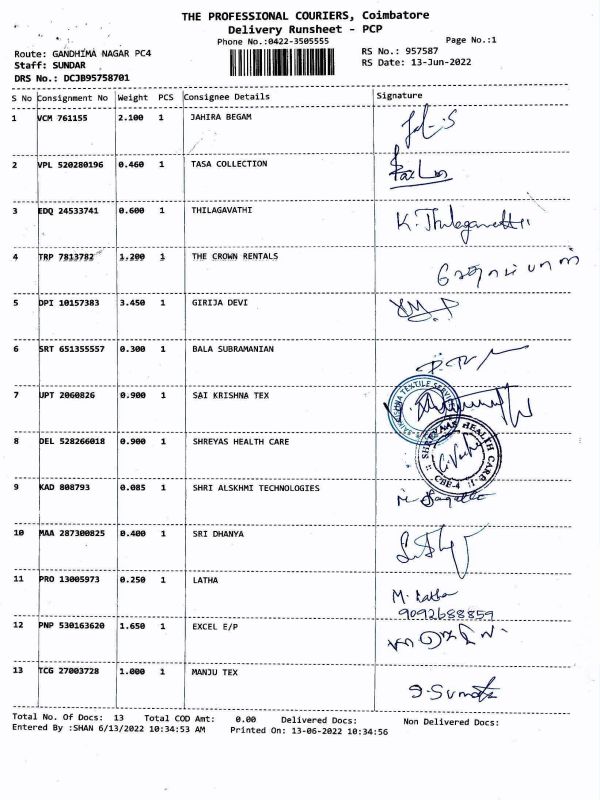 THE PROFESSIONAL COURIERS, Coimbatore
Delivery Runsheet - PCP
Phone No.:0422-3505555
Page No.:1
Route: GANDHIMA NAGAR PC4
RS No.: 957587
Staff: SUNDAR
RS Date: 13-Jun-2022
DRS No.: DCJB95758701
S No Consignment No Weight PCS Consignee Details Signature
1 VCM 761155 2.100 1 JAHIRA BEGAM
2 VPL 520280196 0.460 1 TASA COLLECTION
3 EDQ 24533741 0.600 1 THILAGAVATHI K. Thilagavathi
4 TRP 7813782 1.200 1 THE CROWN RENTALS
5 DPI 10157383 3.450 1 GIRIJA DEVI
6 SRT 651355557 0.300 1 BALA SUBRAMANIAN
7 UPT 2060826 0.900 1 SAI KRISHNA TEX
SAI KRISHNA TEXTILE SERVICES
8 DEL 528266018 0.900 1 SHREYAS HEALTH CARE
SHREYAAS HEALTH CARE
CBE-4
9 KAD 808793 0.085 1 SHRI ALSKHMI TECHNOLOGIES
10 MAA 287300825 0.400 1 SRI DHANYA
11 PRO 13005973 0.250 1 LATHA M. Latha
9092688859
12 PNP 530163620 1.650 1 EXCEL E/P
13 TCG 27003728 1.000 1 MANJU TEX
Total No. Of Docs: 13 Total COD Amt: 0.00 Delivered Docs: Non Delivered Docs:
Entered By :SHAN 6/13/2022 10:34:53 AM Printed On: 13-06-2022 10:34:56